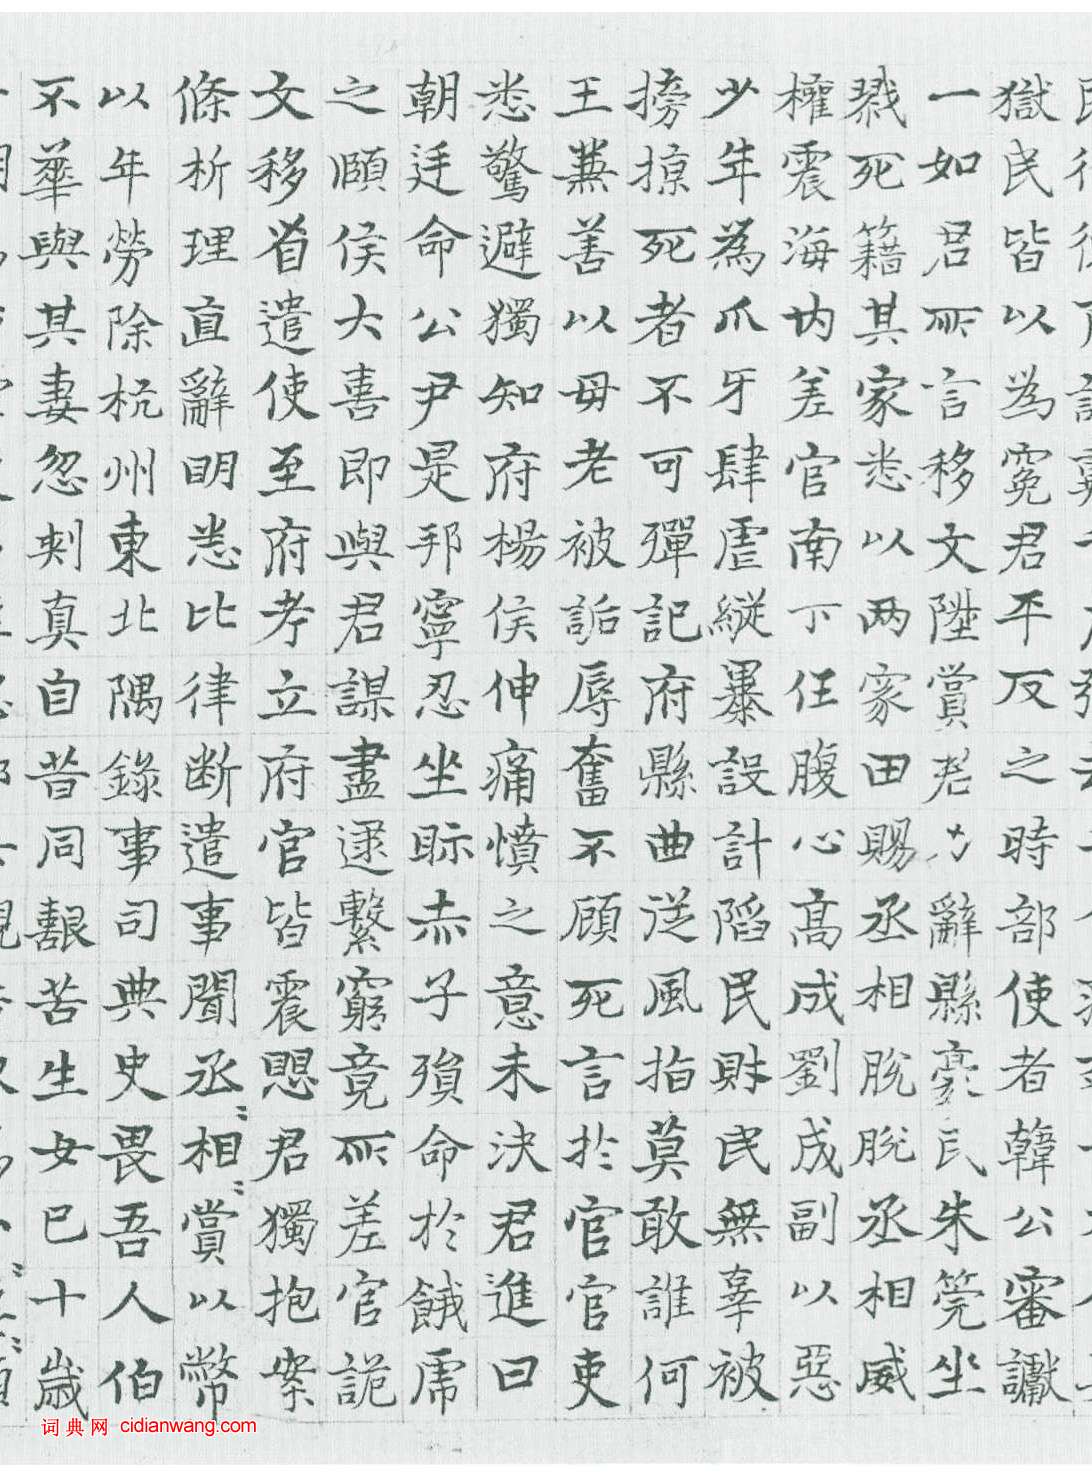 獄民皆以為冤君平反之時部使者韓公審讞
一如君所言移文陞賞君力辭縣豪民朱筦坐
戮死籍其家悉以两家田賜丞相脫脫丞相威
權震海内差官南下任腹心髙成劉成副以惡
少年為爪牙肆虐縱暴設計陷民財民無辜被
搒掠死者不可殫記府縣曲從風指莫敢誰何
王蕪善以母老被詬辱奮不顧死言於官官吏
悉驚避獨知府楊侯伸痛憤之意未決君進曰
朝廷命公尹是邦寧忍坐眎赤子殞命於餓虎
之頤侯大喜即與君謀盡逮繫窮竟所差官詭
文移省遣使至府考立府官皆震愳君獨抱案
條析理直辭明悉比律断遣事聞丞相賞以幣
以年勞除杭州東北隅錄事司典史畏吾人伯
不華與其妻忽刺真自昔同艱苦生女巳十歲
詞典网 cidianwang.com